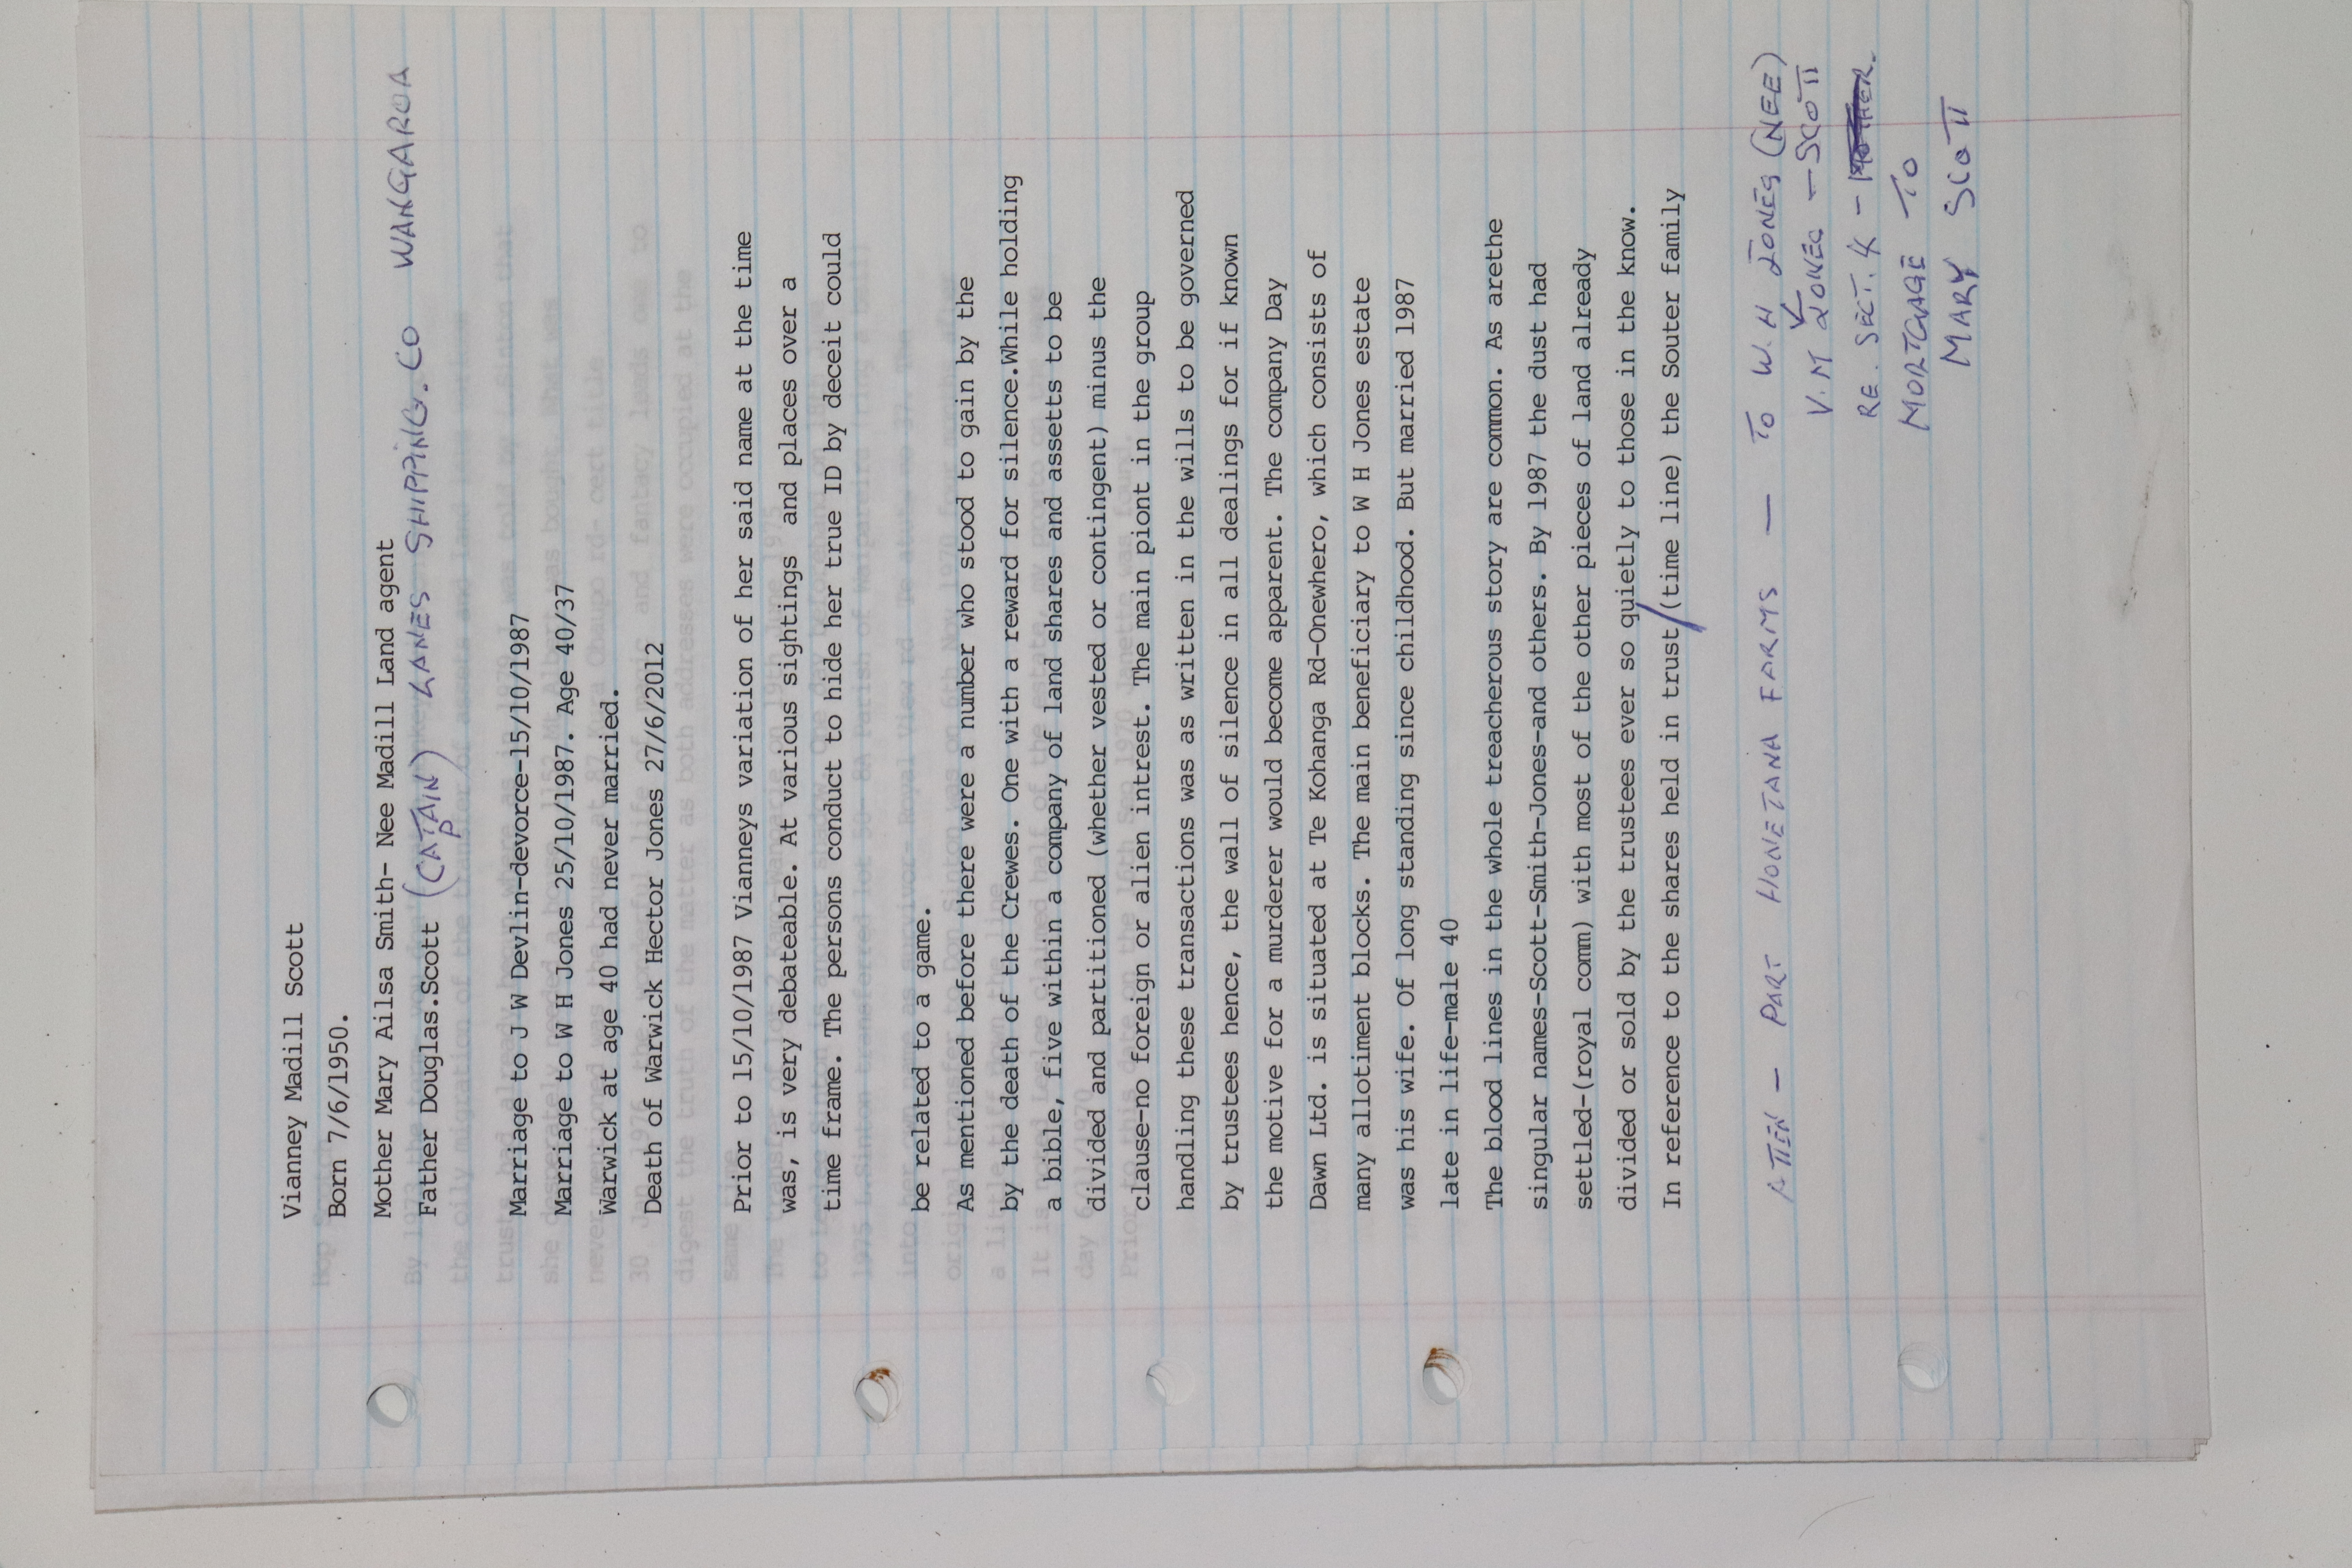 Vianney Madill Scott
Born 7/6/1950.
Mother Mary Ailsa Smith- Nee Madill Land agent
Father Douglas.Scott (CAPTAIN) LANES SHIPPING. CO WANGAROA
Marriage to J W Devlin-devorce-15/10/1987
Marriage to W H Jones 25/10/1987. Age 40/37
Warwick at age 40 had never married.
Death of Warwick Hector Jones 27/6/2012
Prior to 15/10/1987 Vianneys variation of her said name at the time
was, is very debateable. At various sightings and places over a
time frame. The persons conduct to hide her true ID by deceit could
be related to a game.
As mentioned before there were a number who stood to gain by the
by the death of the Crewes. One with a reward for silence.While holding
a bible, five within a company of land shares and assetts to be
divided and partitioned (whether vested or contingent) minus the
clause-no foreign or alien intrest. The main piont in the group
handling these transactions was as written in the wills to be governed
by trustees hence, the wall of silence in all dealings for if known
the motive for a murderer would become apparent. The company Day
Dawn Ltd. is situated at Te Kohanga Rd-Onewhero, which consists of
many allotiment blocks. The main beneficiary to W H Jones estate
was his wife. Of long standing since childhood. But married 1987
late in life-male 40
The blood lines in the whole treacherous story are common. As arethe
singular names-Scott-Smith-Jones-and others. By 1987 the dust had
settled-(royal comm) with most of the other pieces of land already
divided or sold by the trustees ever so quietly to those in the know.
In reference to the shares held in trust/(time line) the Souter family
ATTEN - PART HONETANA FARMS — TO W. H JONES (NEE)
V. M JONES - SCOTT
RE. SECT. 4 -
MORTGAGE TO
MARY SCOTT